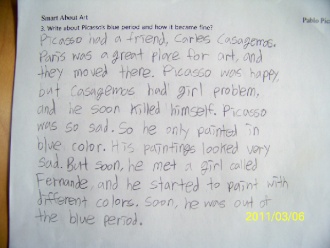 Smart About Art
Pablo Pic
3. Write about Picasso's blue period and how it became fine?
Picasso had a friend, Carles Casagemos.
Paris was a great place for art, and
they moved there. Picasso was happy,
but Casagemos had girl problem,
and he soon killed himself. Picasso
was so sad. So he only painted in
blue color. His paintings looked very
sad. But soon, he met a girl called
Fernande, and he started to paint with
different colors. Soon, he was out of
the blue period.
2011/03/06